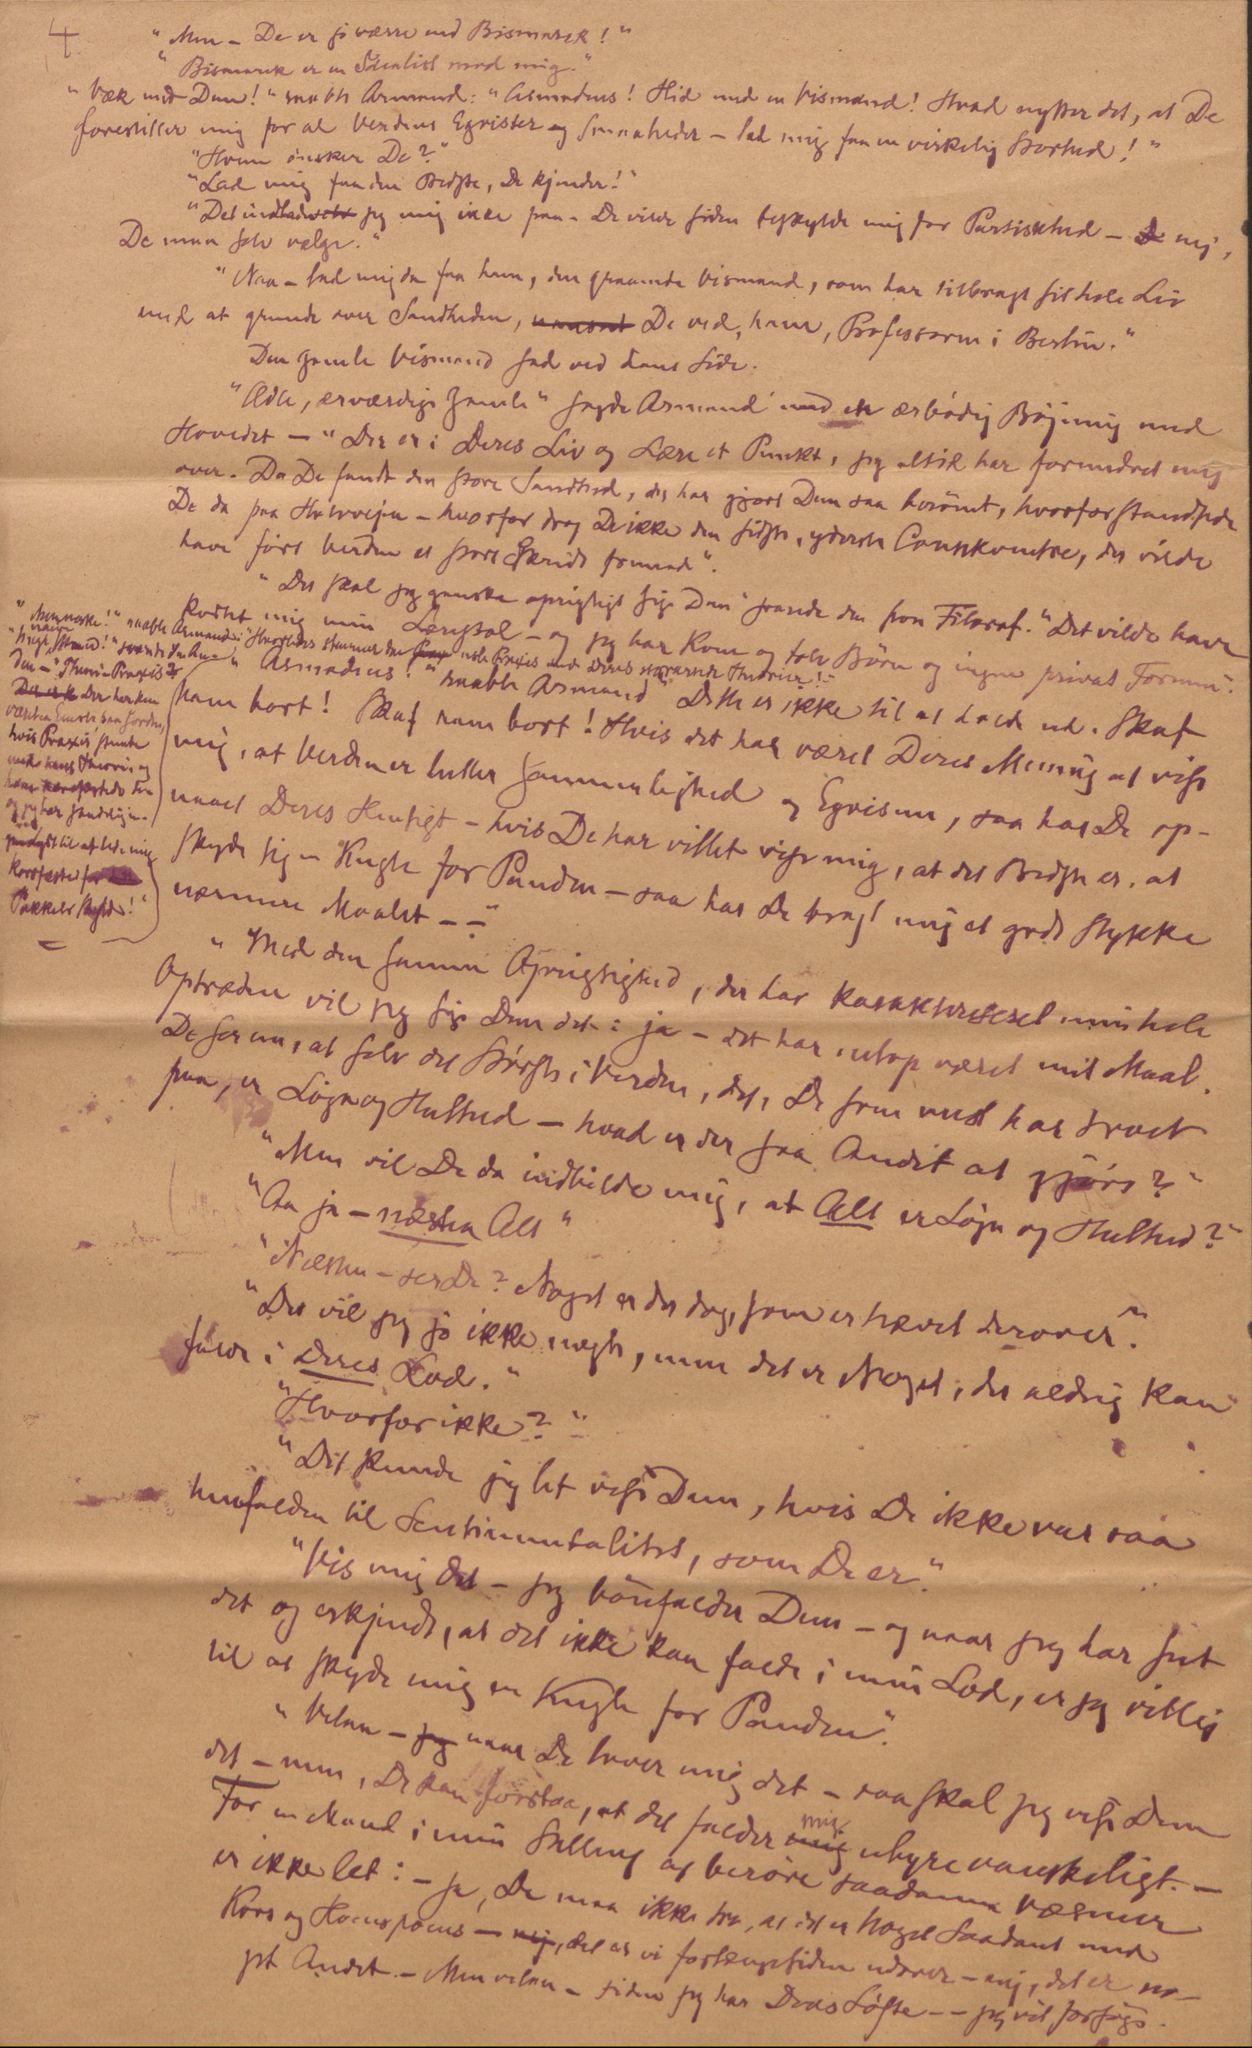 4
"Men – De er jo værre end Bismarck!"
"Bismarck er en Idealist mod mig."
"Væk med Dem!" raabte Armand: "Asmodeus! Hid med en Vismand! Hvad nytter det, at De
forestiller mig for al Verdens Egoister og Smaaheder – lad mig faa en virkelig Storhed!"
"Hvem ønsker De?"
"Lad mig faa den Bedste, De kjender!"
"Det indlader jeg mig ikke paa – De vilde siden beskylde mig for Partiskhed – nej,
De maa selv vælge."
"Naa – lad mig da faa ham, den graanende Vismand, som har tilbragt sit hele Liv
med at grunde over Sandheden, De ved, ham, Professoren i Berlin."
Den gamle Vismand sad ved hans Side.
"Ædle, ærværdige Gamle" sagde Armand med en ærbødig Bøjning med
Hovedet – "Der er i Deres Liv og Lære et Punkt, jeg altid har forundret mig
over. Da De fandt den store Sandhed, der har gjort Dem saa berömt, hvorfor standsede
De da paa Halvvejen – hvorfor drog De ikke den sidste, yderste Conskventse, der vilde
have fört Verden et stort Skridt fremad".
"Det skal jeg ganske oprigtigt sige Dem" svarede den Filosof. "Det vilde have
kostet mig min Lærestol – og jeg har Kone og tolv Börn og ingen privat Formue."
"Menneske!" raabte Armand: "Hvorledes stemmer den Praxis med Deres Theorier!"
"Asmodeus!" raabte Armand "Dette er ikke til at holde ud. Skaf
ham bort! Skaf ham bort! Hvis det har været Deres Mening at vise
mig, at Verden er lutter Jammerlighed og Egoisme, saa har De op-
naaet Deres Hensigt – hvis De har villet vise mig, at det Bedste er, at
skyde sig en Kugle for Panden – saa har De bragt mig et godt Stykke
nærmere Maalet – –"
svarede
den – "Theori – Praxis?
Der
hvis Praxis stemte
med hans Theori, og
til at lade mig
korsfæste
Pakkels Skyld!"
"Med den samme Oprigtighed, der har karakteriseret min hele
Optræden vil jeg sige Dem det: ja – det har netop været mit Maal.
De ser nu, at selv det Störste i Verden, det, De som mest har troet
paa, er Lögn og Hulhed – hvad er der saa Andet at gjöre?"
"Men vil De da indbilde mig, at Alt er Lögn og Hulhed?"
"Aa ja – næsten Alt"
"Næsten – ser De? Noget er der dog, som er hævet derover".
"Det vil jeg jo ikke nægte, men det er Noget, der aldrig kan
falde i Deres Lod."
"Hvorfor ikke?"
"Det kunde jeg let vise Dem, hvis De ikke var saa
henfalden til Sentimentalitet, som De er."
"Vis mig det – jeg bönfalder Dem – og naar jeg har set
det og erkjendt, at det ikke kan falde i min Lod, er jeg villig
til at skyde mig en Kugle for Panden".
"Velan – jeg naar De lover mig det – saa skal jeg vise Dem
det – men, De kan forstaa, at det falder mig uhyre vanskeligt. –
For en Mand i min Stilling at beröre saadanne Væsener
er ikke let: – Ja, De maa ikke tro, at det er Noget Saadant med
Kors og Hocuspocus – nej, det er vi forlængst ude over – nej, det er no-
get Andet. – Men velan – siden jeg har Deres Löfte – – jeg vil forsöge.